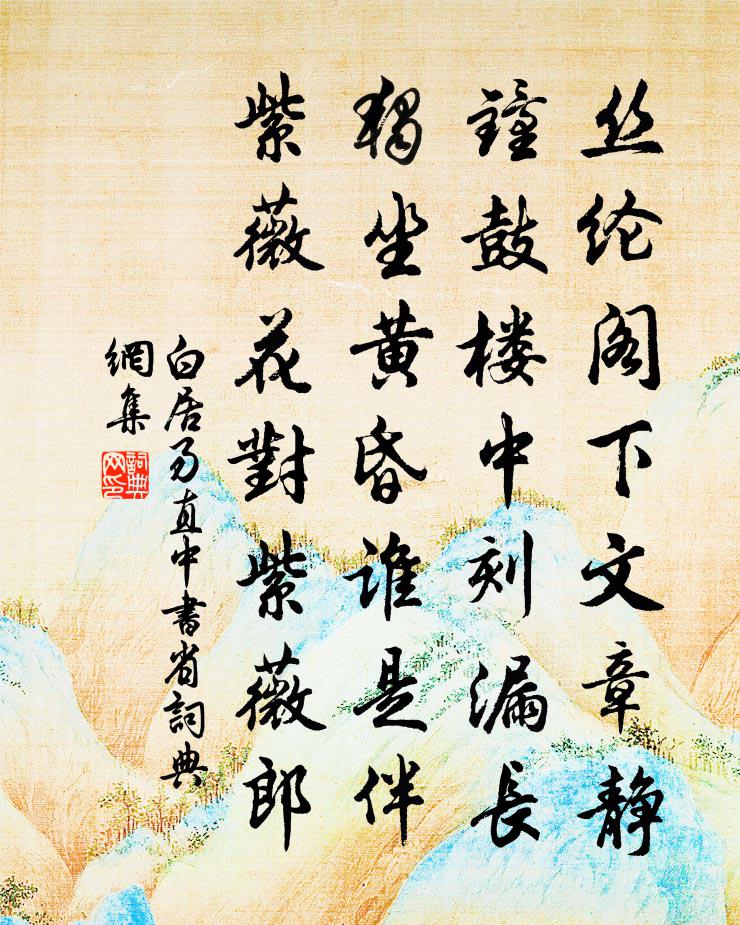 丝纶阁下文章静
鐘鼓楼中刻漏長
獨坐黄昏谁是伴
紫薇花對紫薇郎
白居易直中書省詞典
網集
詞典
网印